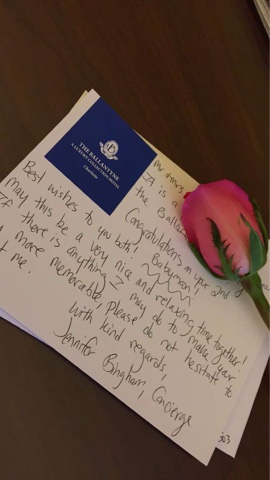 THE BALLANTYNE
A LUXURY COLLECTION HOTEL
Charlotte
Mr & Mrs
It is a
the Balla
Congratulations on your 2nd
Babymoon!
Best wishes to you both!
May this be a very nice and relaxing time together!
If there is anything I may do to make your
more memorable. Please do not hesitate to
t me.
With kind regards,
Jennifer Bingham, Concierge